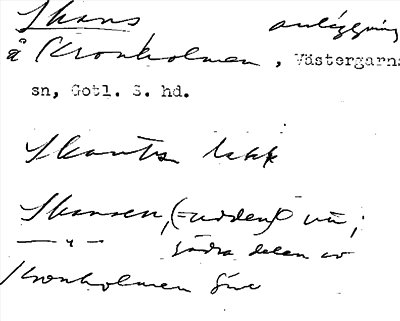 Skans anläggning
å Kronholmen, Västergarns
sn, Gotl. S. hd.
Skants
Skansen, (=udden)
— " — södra delen av
Kronholmen